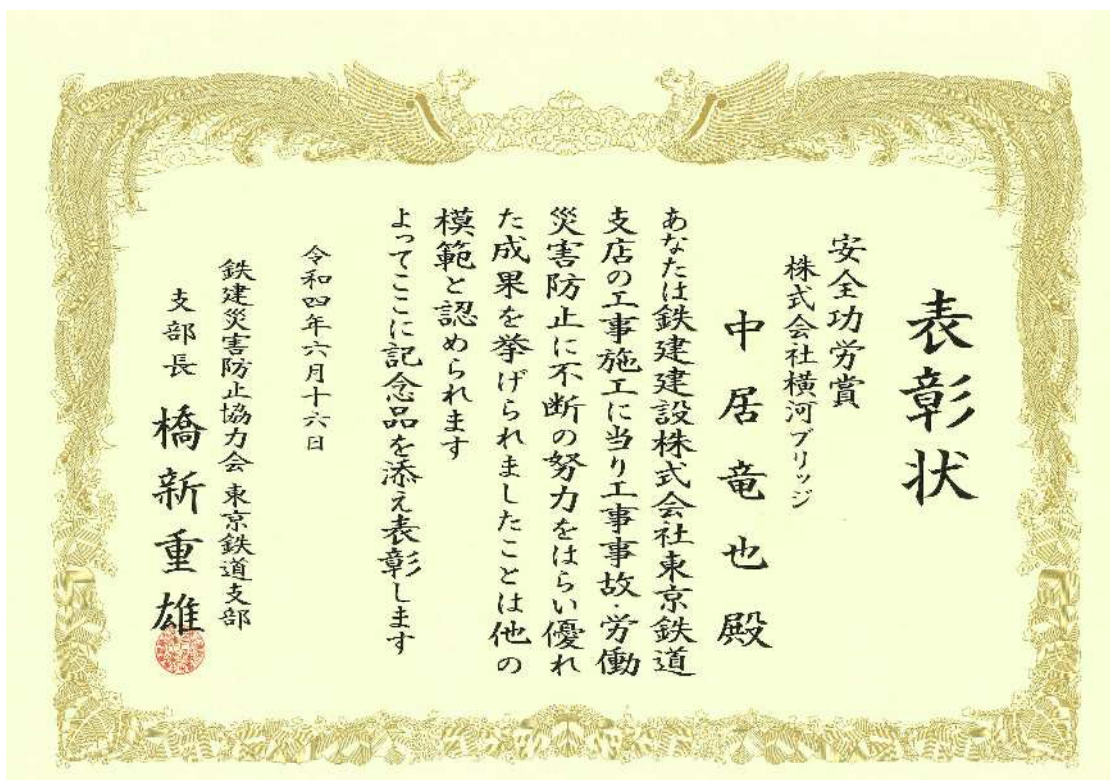 表彰状
安全功労賞
株式会社横河ブリッジ
中居竜也殿
あなたは鉄建建設株式会社東京鉄道
支店の工事施工に当り工事事故・労働
災害防止に不断の努力をはらい優れ
た成果を挙げられましたことは他の
模範と認められます
よってここに記念品を添え表彰します
令和四年六月十六日
鉄建災害防止協力会 東京鉄道支部
支部長 橋新重雄